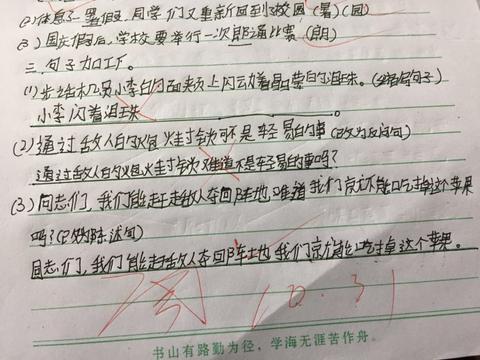 (2)休息了一暑假,同学们又重新回到了校园(暑)(园)
(3)国庆假后,学校要举行一次朗诵比赛(朗)
三、句子加工厂。
(1)步话机员小李白的面颊上闪动着晶莹的泪珠。(缩句)
小李闪着泪珠
(2)通过敌人的火烧封锁可不是轻易的事(改为反问句)
通过敌人的火烧封锁难道不是轻易的事吗?
(3)同志们,我们能赶走敌人夺回阵地,难道我们就不能吃掉这个苹果
吗?(改为陈述句)
同志们,我们能赶走敌人夺回阵地,我们就能吃掉这个苹果。
10.31
书山有路勤为径,学海无涯苦作舟。